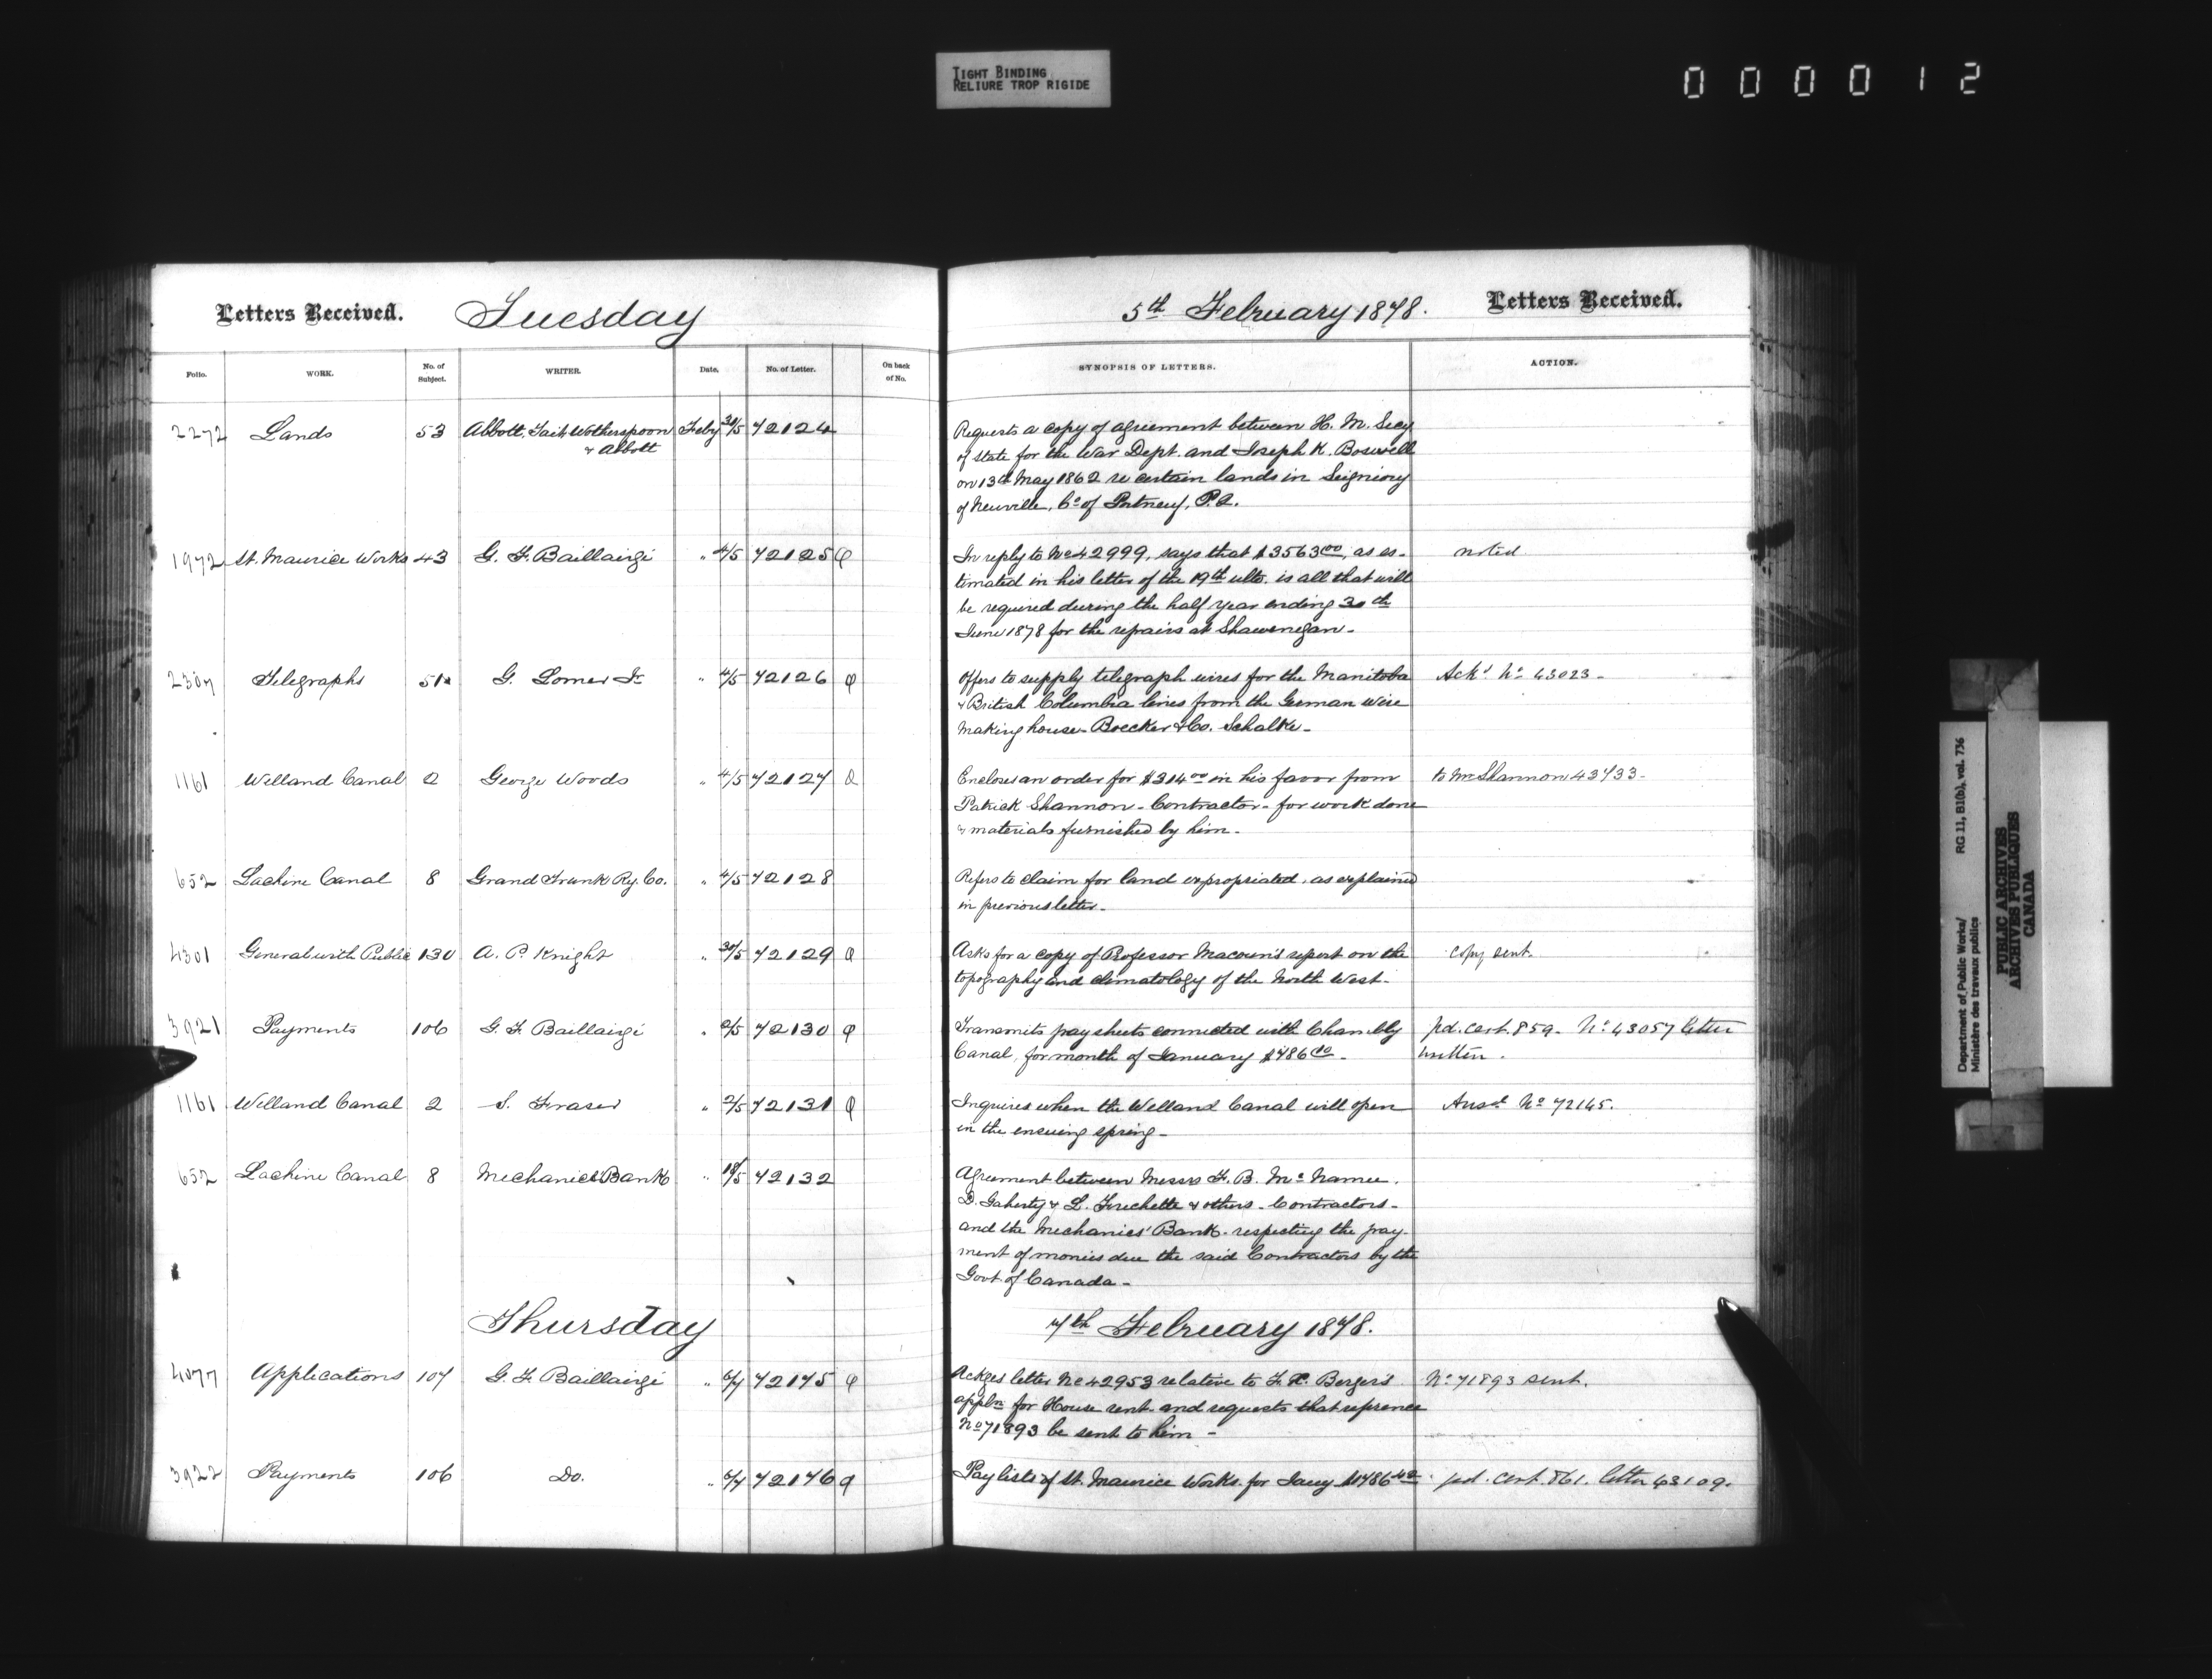 TIGHT BINDING
RELIURE TROP RIGIDE
000012
Letters Received. Tuesday
5th February 1878. Letters Received.
Folio. WORK. No. of Subject. WRITER. Date. No. of Letter. On back of No. SYNOPSIS OF LETTERS. ACTION.
2272 Lands 53 Abbott, Tait, Wotherspoon Feby 30/5 72124
& Abbott
Requests a copy of agreement between H. M. Secy
of State for the War Dept. and Joseph K. Boswell
on 13th May 1862 re certain lands in Seigniory
of Neuville, Co of Portneuf, P.Q.
1972 St. Maurice Works 43 G. F. Baillairgé " 4/5 72125
In reply to No 42999, says that $3563.00, as es-
timated in his letter of the 19th ulto. is all that will
be required during the half year ending 30th
June 1878 for the repairs at Shawenegan -
noted
2307 Telegraphs 51 G. Lomer Jr " 4/5 72126
Offers to supply telegraph wires for the Manitoba
& British Columbia lines from the German wire
making house - Boecker & Co. Schalke -
Ackd No 43023 -
1161 Welland Canal 2 George Woods " 4/5 72127
Encloses an order for $314.00 in his favor from
Patrick Shannon - Contractor - for work done
& materials furnished by him -
to Mr Shannon 43733 -
652 Lachine Canal 8 Grand Trunk Ry. Co. " 4/5 72128
Refers to claim for land expropriated, as explained
in previous letter -
4301 General with Public 130 A. P. Knight " 30/5 72129
Asks for a copy of Professor Macoun's report on the
topography and climatology of the North West -
copy sent.
3921 Payments 106 G. F. Baillairgé " 2/5 72130
Transmits pay sheets connected with Chambly
Canal, for month of January $786
pd. cert. 859 - No 43057 letter
written.
1161 Welland Canal 2 S. Fraser " 2/5 72131
Inquires when the Welland Canal will open
in the ensuing spring -
Ansd No 72145.
652 Lachine Canal 8 Mechanics' Bank " 18/5 72132
Agreement between Messrs F. B. McNamee.
D. Gaherty & L. Frechette & others - Contractors -
and the Mechanics' Bank - respecting the pay-
ment of monies due the said Contractors by the
Govt. of Canada -
Thursday 7th February 1878.
4077 Applications 107 G. F. Baillairgé " 6/7 72175
Ackges letter No 42953 relative to F. X. Berger's
appln for House rent and requests that reference
No 71893 be sent to him -
No 71893 sent.
3922 Payments 106 Do. " 6/7 72176
Pay lists of St. Maurice Works for Jany
pd. cert. 861. letter 43109.
Department of Public Works/ RG 11, B1(b), vol. 736
Ministère des travaux publics
PUBLIC ARCHIVES
ARCHIVES PUBLIQUES
CANADA